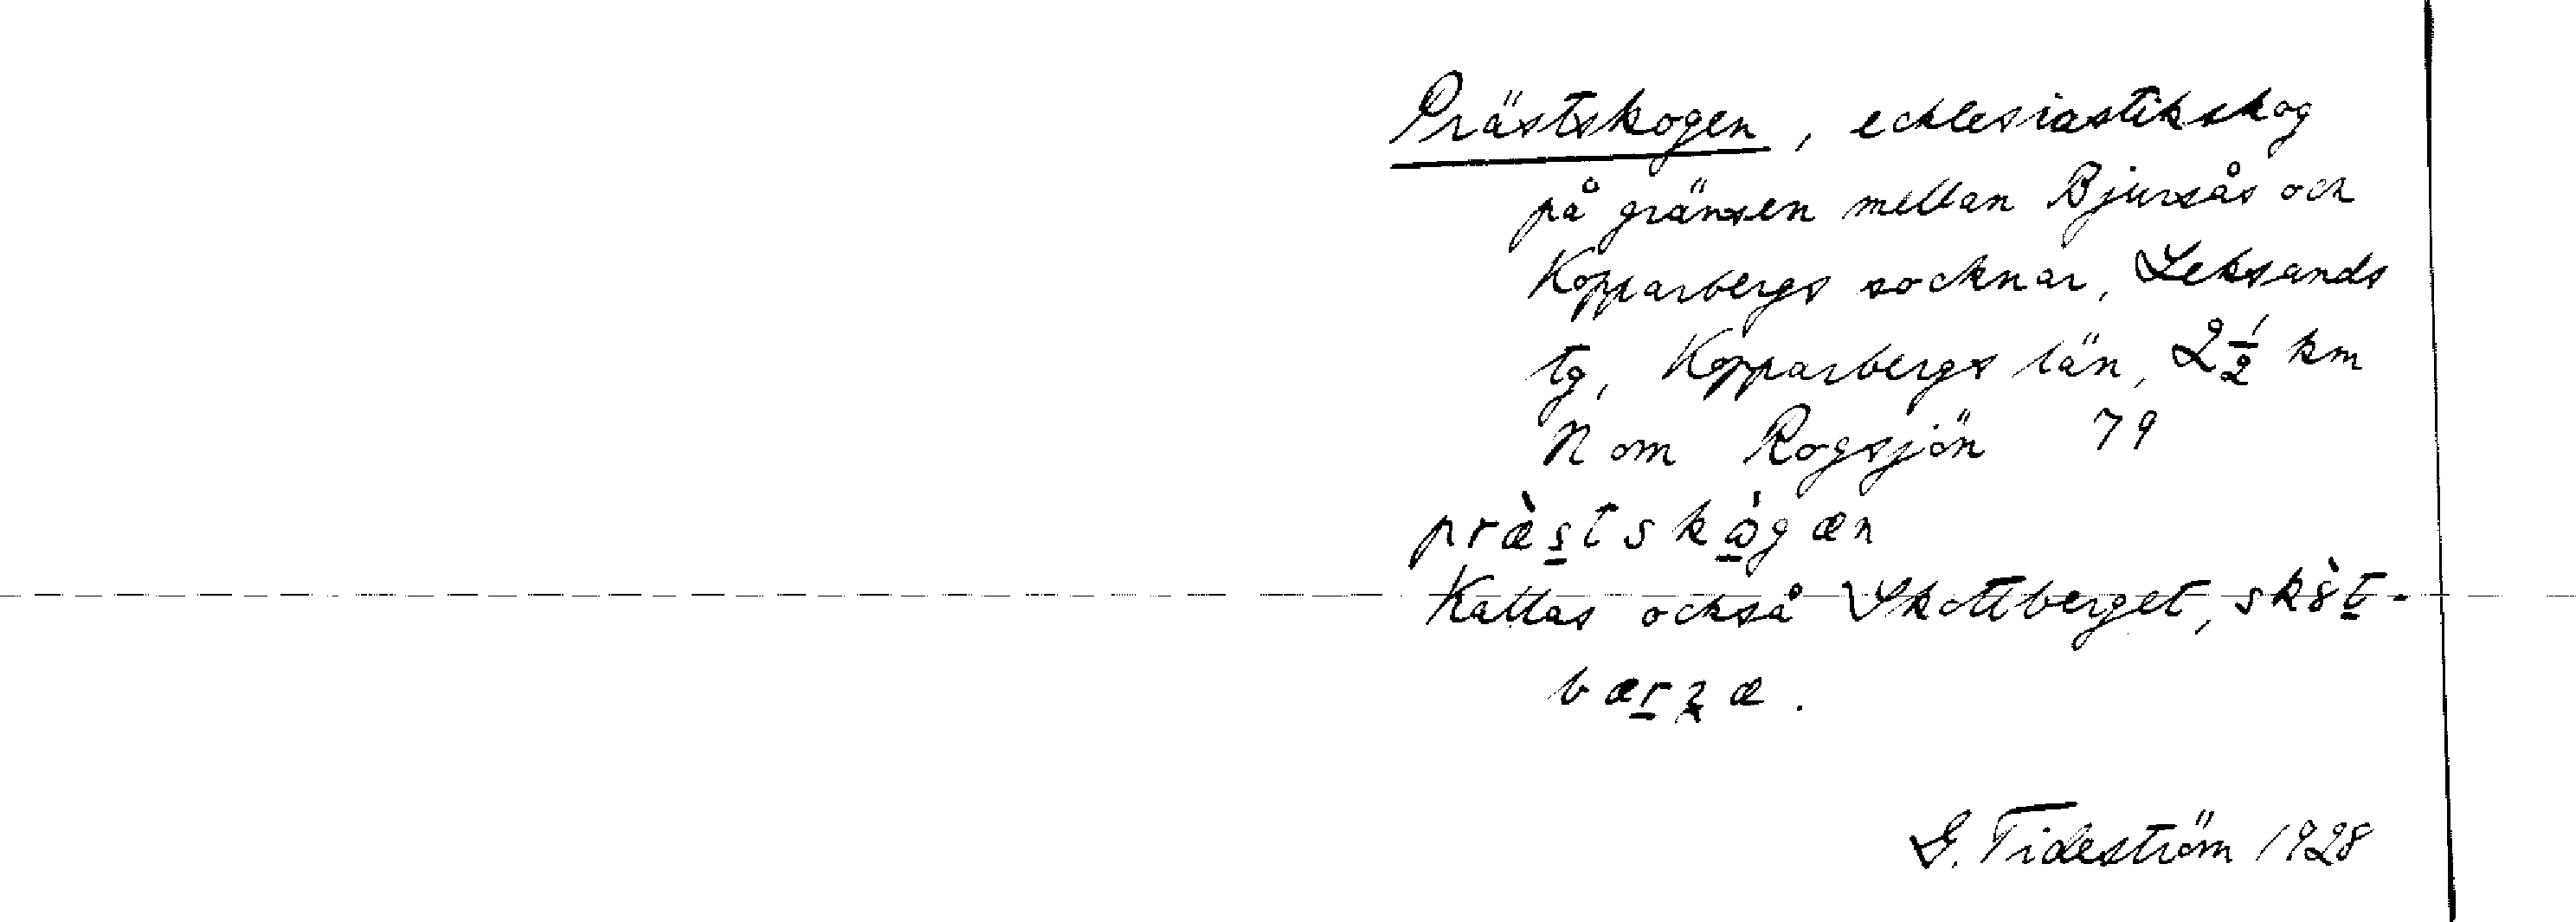 Prästskogen, ecklesiastikskog
på gränsen mellan Bjursås och
Kopparbergs socknar, Leksands
tg, Kopparbergs län, 2 1/2 km
N om Rogsjön 79
præ̀stskò̱gæn
Kallas också Skottberget, skòt-
bærʒæ.
G. Tideström 1928